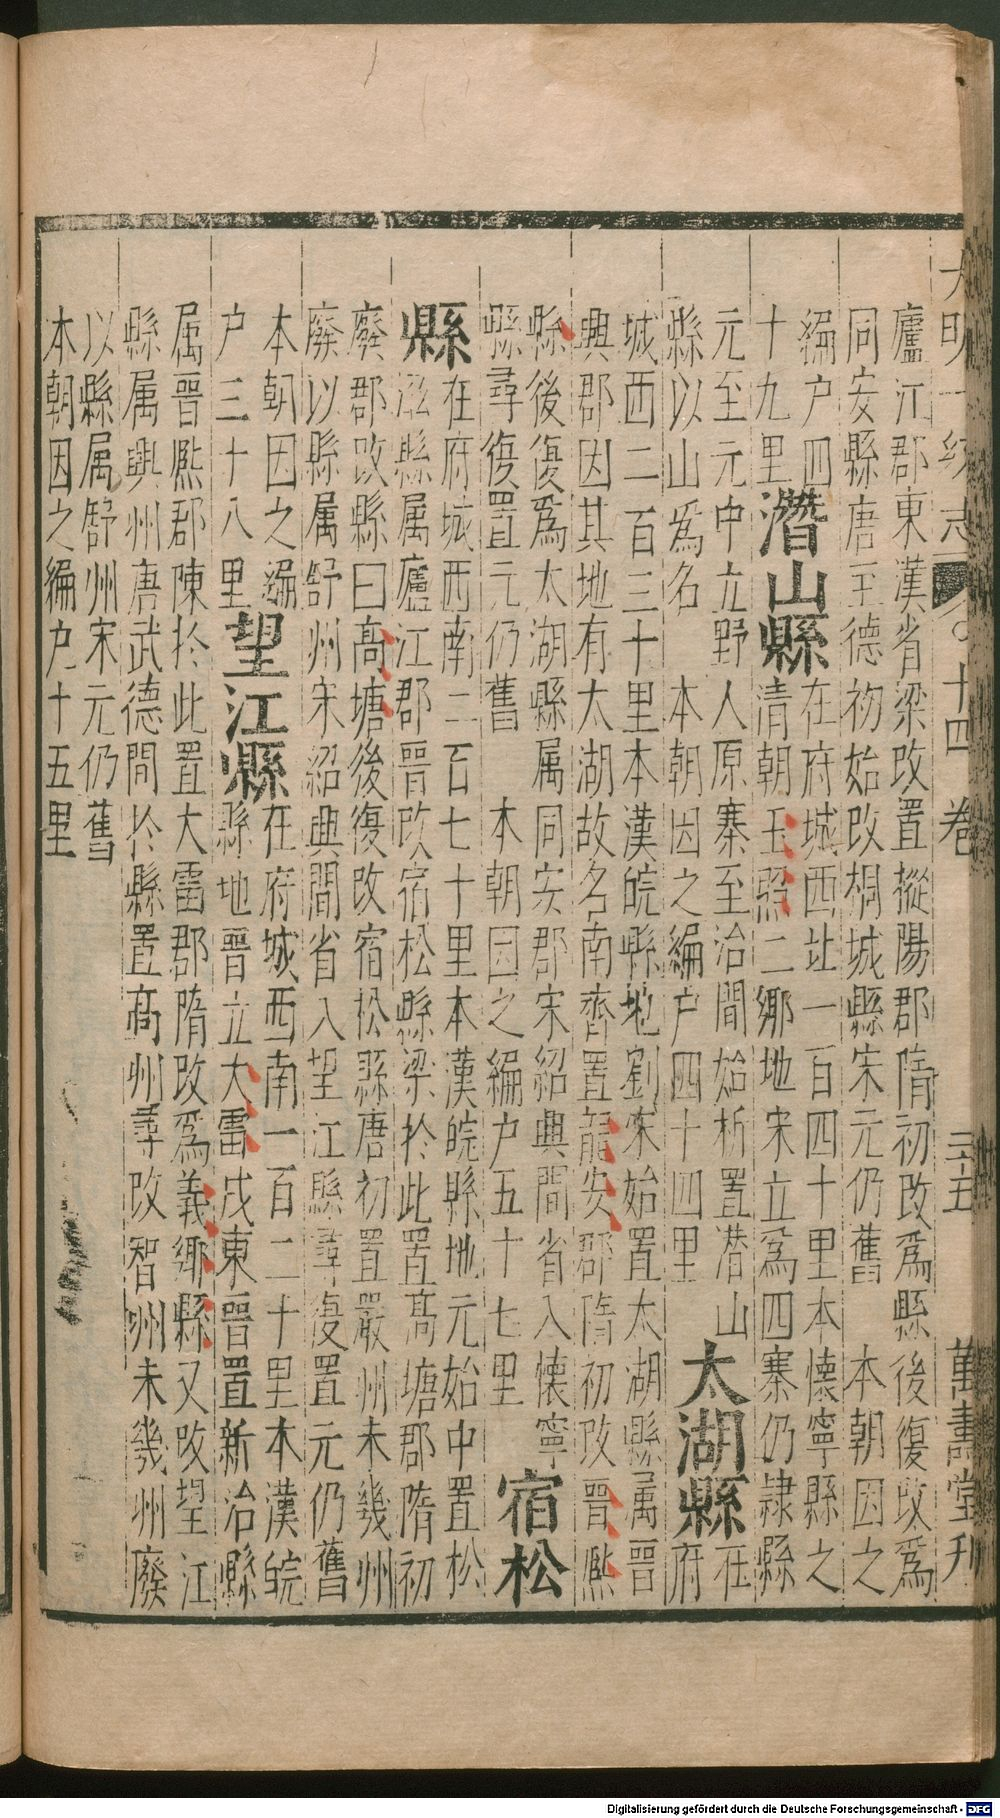 大明一統志 之十四卷 三十五 萬壽堂刊
廬江郡東漢省梁改置樅陽郡隋初改為縣後復改為
同安縣唐至德初始改桐城縣宋元仍舊 本朝因之
編户四
十九里
潛山縣
在府城西北一百四十里本懷寧縣之
清朝玉照二鄉地宋立為四寨仍隸縣
元至元中立野人原寨至治間始析置潛山
縣以山為名 本朝因之編户四十四里
太湖縣
在
府
城西二百三十里本漢皖縣地劉宋始置太湖縣属晉
興郡因其地有太湖故名南齊置龍安郡隋初改晉熈
縣後復為太湖縣属同安郡宋紹興間省入懷寧
縣尋復置元仍舊 本朝因之編户五十七里
宿松
縣
在府城西南二百七十里本漢皖縣地元始中置松
滋縣属廬江郡晉改宿松縣梁於此置高塘郡隋初
廢郡改縣曰高塘後復改宿松縣唐初置嚴州未幾州
廢以縣属舒州宋紹興間省入望江縣尋復置元仍舊
本朝因之編
户三十八里
望江縣
在府城西南一百二十里本漢皖
縣地晉立大雷戍東晉置新治縣
属晉熈郡陳於此置大雷郡隋改為義鄉縣又改望江
縣属興州唐武德間於縣置高州尋改智州未幾州廢
以縣属舒州宋元仍舊
本朝因之編户十五里
Digitalisierung gefördert durch die Deutsche Forschungsgemeinschaft - DFG